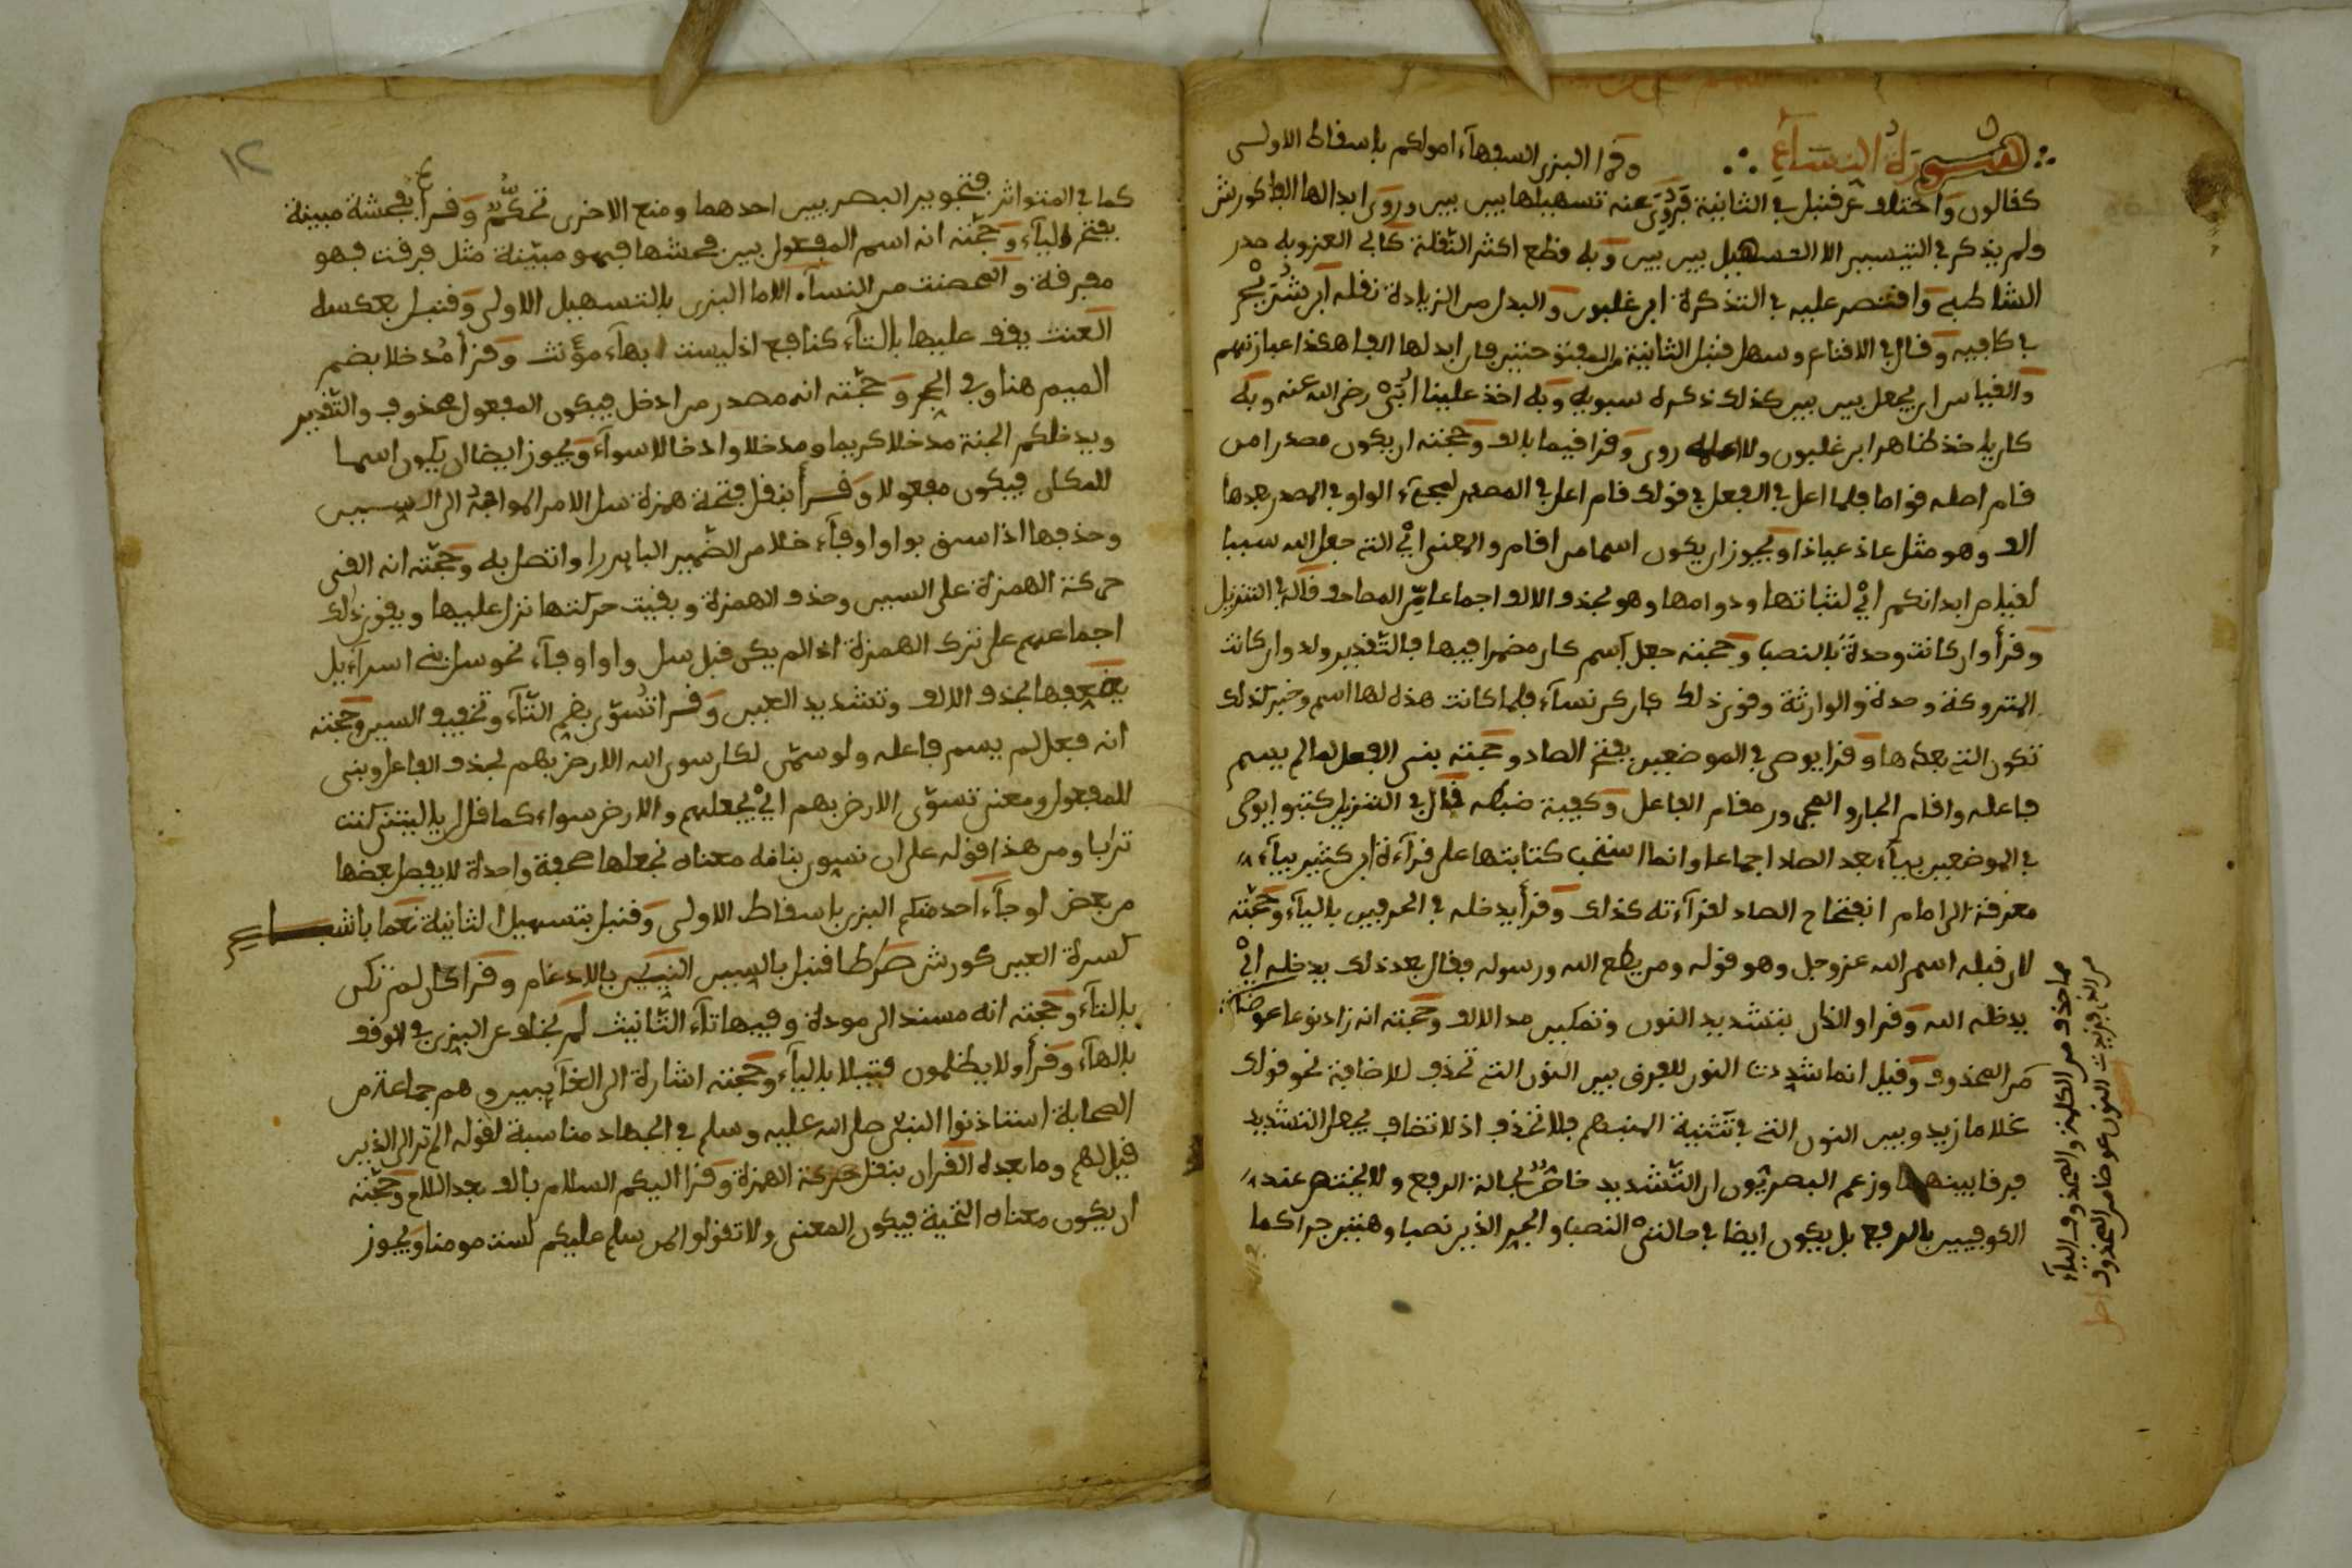 سورة النساء وقرأ البزي السفهاء اموالكم باسقاط الاولى
كقالون واختلف عن قنبل في الثانية فروي عنه تسهيلها بين بين وروي ابدالها الفا كورش
ولم يذكر في التيسير الا التسهيل بين بين وبه قطع اكثر النقلة كابي العز وبه صدر
الشاطبي واقتصر عليه في التذكرة ابن غلبون والبدل من الزيادة نقله ابن شريح
في كافيه وقال في الاقناع وسهل قنبل الثانية من المفتوحتين فان ابدلها الفا هكذا عبارتهم
والقياس ان يجعل بين بين كذلك ذكره سبويه وبه اخذ علينا ابي رضي الله عنه وبه
كان ياخذ طاهر ابن غلبون وللاعلى روى وقرا قيما بالف وحجته ان يكون مصدرا من
قام اصله قواما فلما اعل في الفعل في قولك قام اعل في المصدر لمجيء الواو في المصدر بعدها
الف وهو مثل عاذ عياذا ويجوز ان يكون اسما من اقام والمعنى اي التي جعل الله سببا
لقيام ابدانكم اي لثباتها ودوامها وهو بحذف الالف اجماعا من المصاحف قاله في التنزيل
وقرأ وان كانت وحدة بالنصب وحجته جعل اسم كان مضمرا فيها فالتقدير ولد وان كانت
المتروكة وحدة والوارثة وقوى ذلك كان كن نساء فلما كانت هذه لها اسم وخبر كذلك
تكون التي بعدها وقرا يوصى في الموضعين بفتح الصاد وحجته بنى الفعل لما لم يسم
فاعله واقام الجار والمجرور مقام الفاعل وكيفية ضبطه قال في التنزيل كتبوا يوصى
في الموضعين بياء بعد الصاد اجماعا وانما استحب كتابتها على قراءة ابن كثير بياء
معرفة الى امام انفتاح الصاد لقراءته كذلك وقرأ يدخله في الحرفين بالياء وحجته
لان قبله اسم الله عز وجل وهو قوله ومن يطع الله ورسوله فقال بعد ذلك يدخله اي
يدخله الله وقرا والذان بتشديد النون وتمكين مد الالف وحجته انه زاد نونا عوضا
من المحذوف وقيل انما شددت النون للفرق بين النون التي تحذف للاضافة نحو قولك
غلاما زيد وبين النون التي في تثنية المبهم فلا تحذف اذ لا تضاف فجعل التشديد
فرقا بينهما وزعم البصريون ان التشديد خاص بحالة الرفع ولا يختص عند
الكوفيين بالرفع بل يكون ايضا في حالتي النصب والجر الذين نصبا وهتين جرا كما
مما حذف من الكلمة والمحذوف الياء
من الذي فزيدت النون عوضا من المحذوف اصل
١٢
كما في المتواتر فتجويز البصريين احدهما ومنع الاخرى تحكم وقرأ بفحشة مبينة
بفتح الياء وحجته انه اسم المفعول بين فحشها فهو مبينة مثل فرقت فهو
مفرقة والمحصنت من النساء الا ما البزي بالتسهيل الاولى وقنبل بعكسه
العنت يقف عليها بالتاء كنافع اذ ليست بهاء مؤنث وقرأ مدخلا بضم
الميم هنا وفي الحج وحجته انه مصدر من ادخل فيكون المفعول محذوف والتقدير
ويدخلكم الجنة مدخلا كريما ومدخلا وادخالا سواء ويجوز ايضا ان يكون اسما
للمكان فيكون مفعولا وقرأ بنقل فتحة همزة سل الامر المواجه الى السين
وحذفها اذا سبق بواو او فاء خلا من الضمير البارز او اتصل به وحجته انه القى
حركة الهمزة على السين وحذف الهمزة وبقيت حركتها تدل عليها ويقوي ذلك
اجماعهم على ترك الهمزة اذا لم يكن قبل سل واو او فاء نحو سل بني اسراءيل
يضعفها بحذف الالف وتشديد العين وقرا تسوى بضم التاء وتخفيف السين وحجته
انه فعل لم يسم فاعله ولو سمي لكان سوى الله الارض بهم فحذف الفاعل وبني
للمفعول ومعنى تسوى الارض بهم اي يجعلهم والارض سواء كما قال يليتني كنت
ترابا ومن هذا قوله على ان نسوي بنانه معناه نجعلها صحفة واحدة لا يفصل بعضها
من بعض او جاء احد منكم البزي باسقاط الاولى وقنبل بتسهيل الثانية نعما باشباع
كسرة العين كورش صرطا قنبل بالسين النبيين بالادغام وقرا كان لم تكن
بالتاء وحجته انه مسند الى مودة وفيها تاء التانيث لم يختلف عن البزي في الوقف
بالهاء وقرأ ولا يظلمون فتيلا بالياء وحجته اشارة الى الغائبين وهم جماعة من
الصحابة استاذنوا النبي صلى الله عليه وسلم في الجهاد مناسبة لقوله الم تر الى الذين
قيل لهم وما بعده القران بنقل حركة الهمزة وقرا اليكم السلام بالف بعد اللام وحجته
ان يكون معناه التحية فيكون المعنى ولا تقولوا لمن سلم عليكم لست مومنا ويجوز